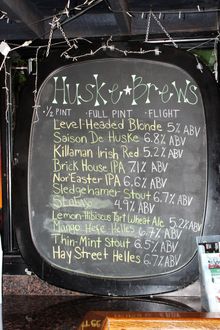 Huske★Brews
½ PINT - FULL PINT - FLIGHT
Level-Headed Blonde 5% ABV
Saison De Huske 6.8% ABV
Killaman Irish Red 5.2% ABV
Brick House IPA 7.1% ABV
Nor'Easter IPA 6.6% ABV
Sledgehamer Stout 6.7% ABV
4.9% ABV
Lemon-Hibiscus Tart Wheat Ale 5.2% ABV
Mango Hefe-Helles 6.7% ABV
Thin-Mint Stout 6.5% ABV
Hay Street Helles 6.7% ABV